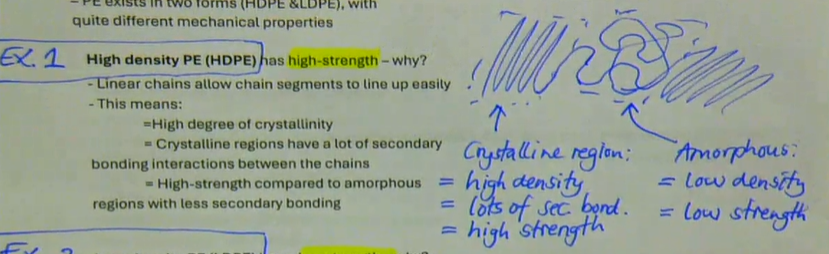 - PE exists in two forms (HDPE &LDPE), with
quite different mechanical properties
EX. 1
High density PE (HDPE) has high-strength – why?
- Linear chains allow chain segments to line up easily
- This means:
=High degree of crystallinity
= Crystalline regions have a lot of secondary
bonding interactions between the chains
= High-strength compared to amorphous
regions with less secondary bonding
Crystalline region:
= high density
= lots of sec. bond.
= high strength
Amorphous:
= low density
= low strength